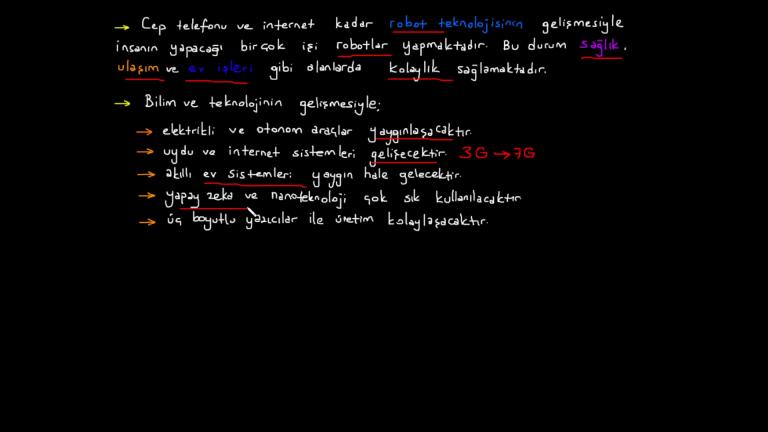 → Cep telefonu ve internet kadar robot teknolojisinin gelişmesiyle
insanın yapacağı birçok işi robotlar yapmaktadır. Bu durum sağlık,
ulaşım ve ev işleri gibi alanlarda kolaylık sağlamaktadır.
→ Bilim ve teknolojinin gelişmesiyle;
→ elektrikli ve otonom araçlar yaygınlaşacaktır.
→ uydu ve internet sistemleri gelişecektir. 3G → 7G
→ akıllı ev sistemleri yaygın hale gelecektir.
→ yapay zeka ve nanoteknoloji çok sık kullanılacaktır
→ üç boyutlu yazıcılar ile üretim kolaylaşacaktır.